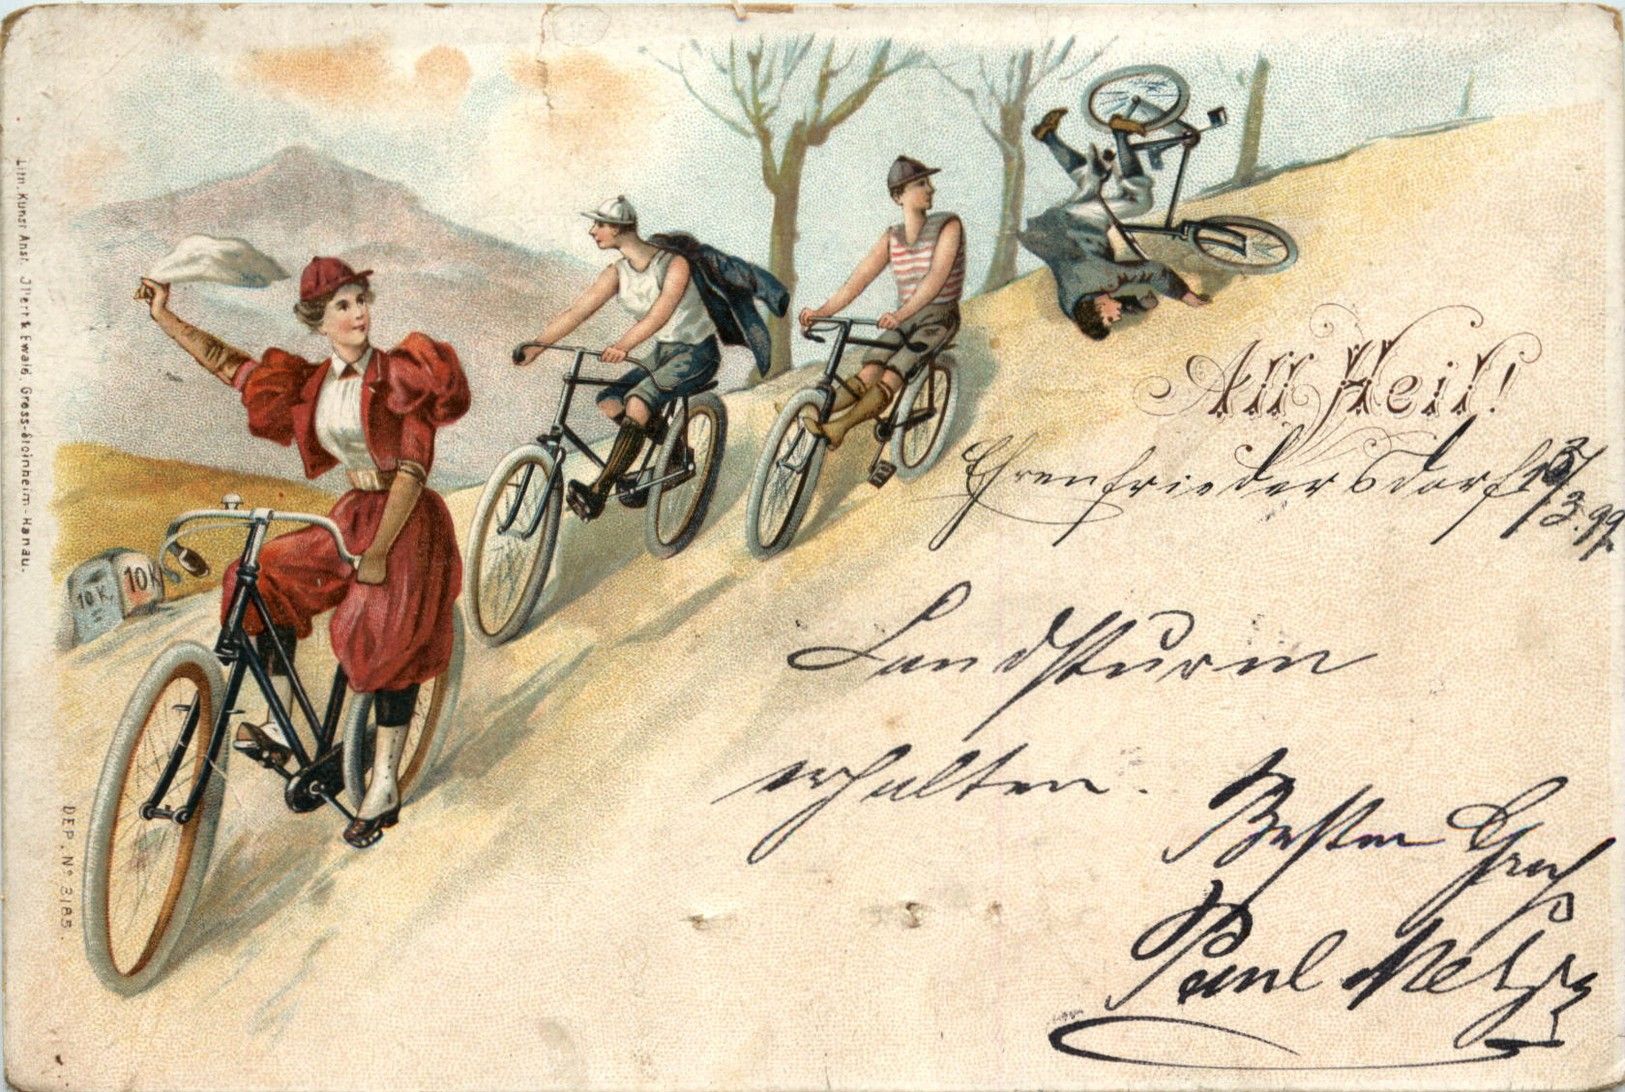 Lith. Kunst Anst. Illert & Ewald, Gross-Steinheim-Hanau.
10 K,
10 K
DEP. No 3185.
All Heil!
Ehrenfriedersdorf
3.99.
Landsturm
erhalten.
Besten Gruß
Paul